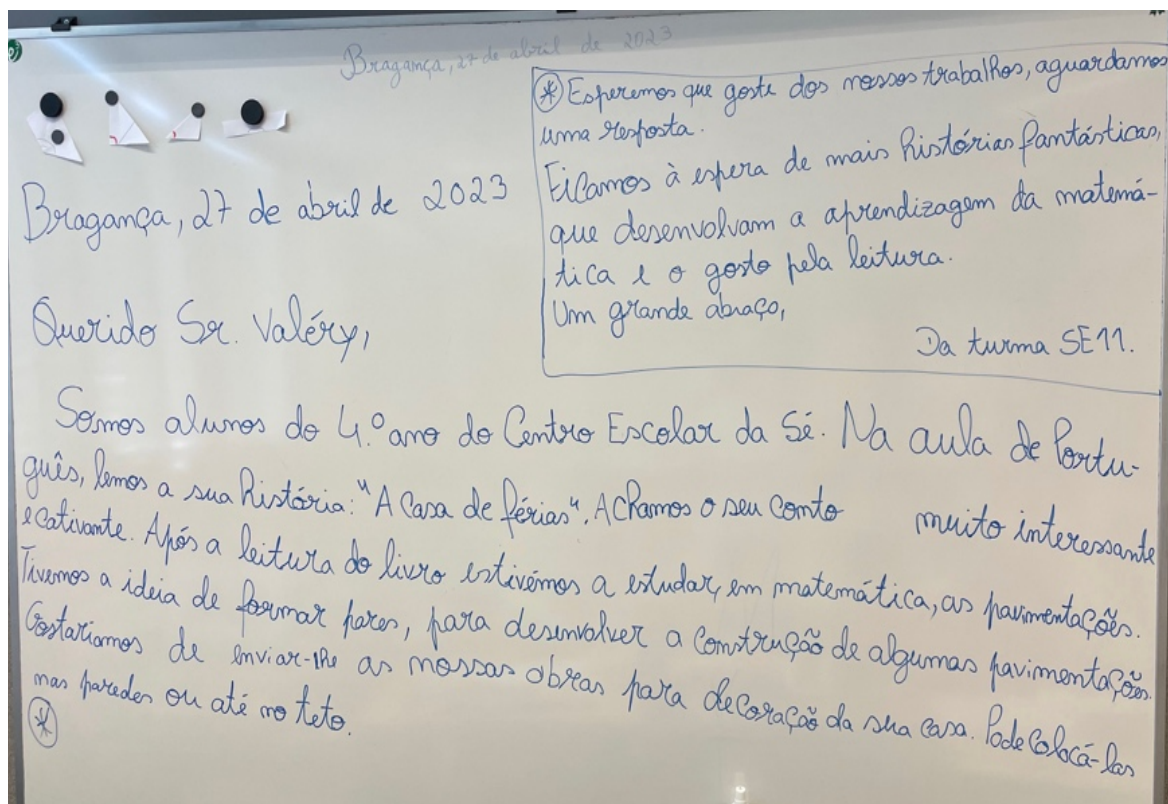 Bragança, 27 de abril de 2023
Bragança, 27 de abril de 2023
Querido Sr. Valéry,
Somos alunos do 4.º ano do Centro Escolar da Sé. Na aula de Portu-
guês, lemos a sua história: "A Casa de férias". Achamos o seu conto muito interessante
e cativante. Após a leitura do livro estivémos a estudar, em matemática, as pavimentações.
Tivemos a ideia de formar pares, para desenvolver a construção de algumas pavimentações.
Gostariamos de enviar-lhe as nossas obras para decoração da sua casa. Pode colocá-las
nas paredes ou até no teto.
*
* Esperemos que goste dos nossos trabalhos, aguardamos
uma resposta.
Ficamos à espera de mais histórias fantásticas,
que desenvolvam a aprendizagem da matemá-
tica e o gosto pela leitura.
Um grande abraço,
Da turma SE11.